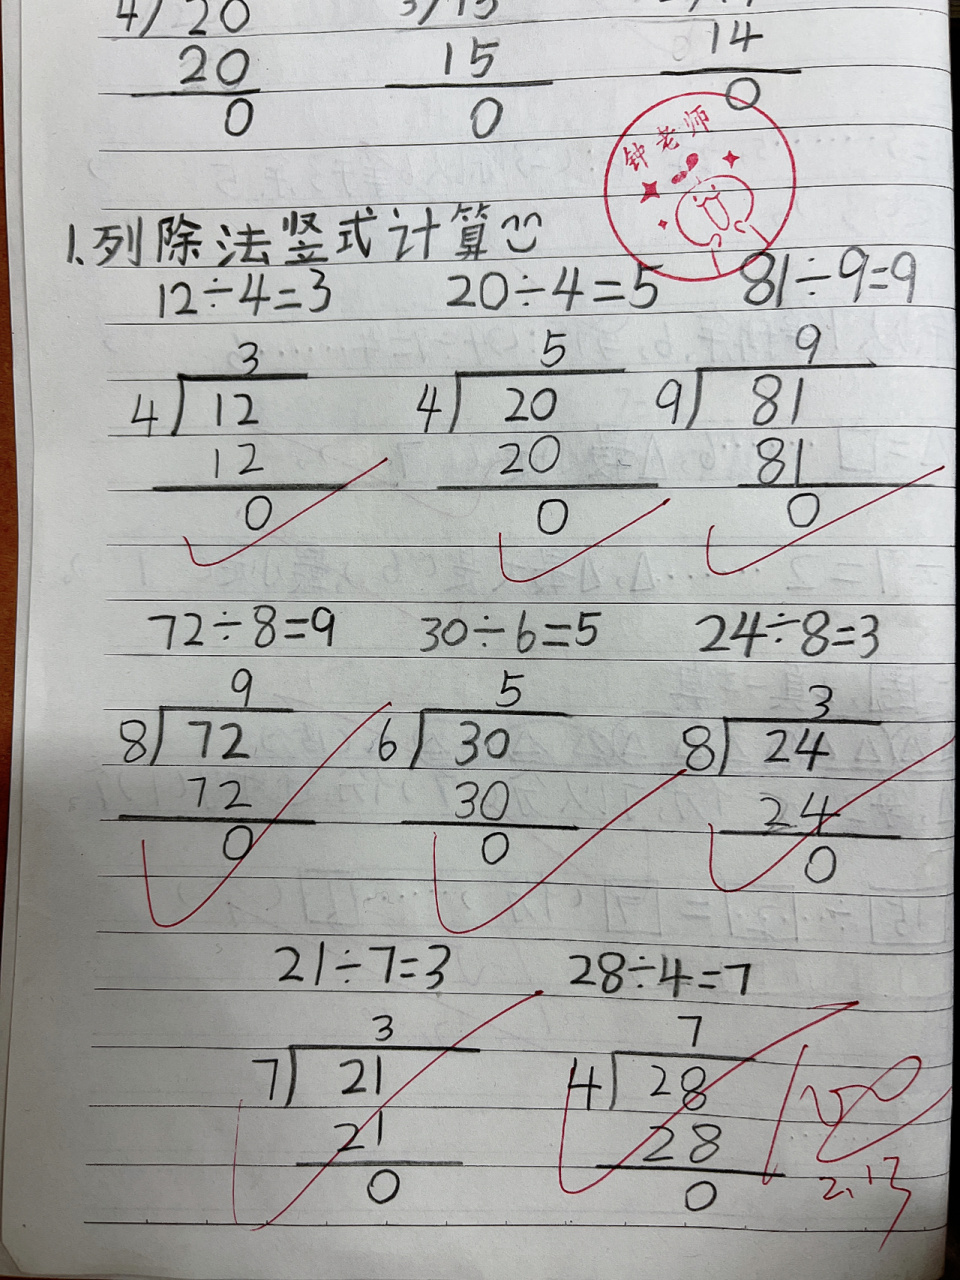 4 20
20 15 14
0 0 0
钟老师
1.列除法竖式计算
12÷4=3 20÷4=5 81÷9=9
3 5 9
4 12 4 20 9 81
12 20 81
0 0 0
72÷8=9 30÷6=5 24÷8=3
9 5 3
8 72 6 30 8 24
72 30 24
0 0 0
21÷7=3 28÷4=7
3 7
7 21 4 28
21 28
0 0
100